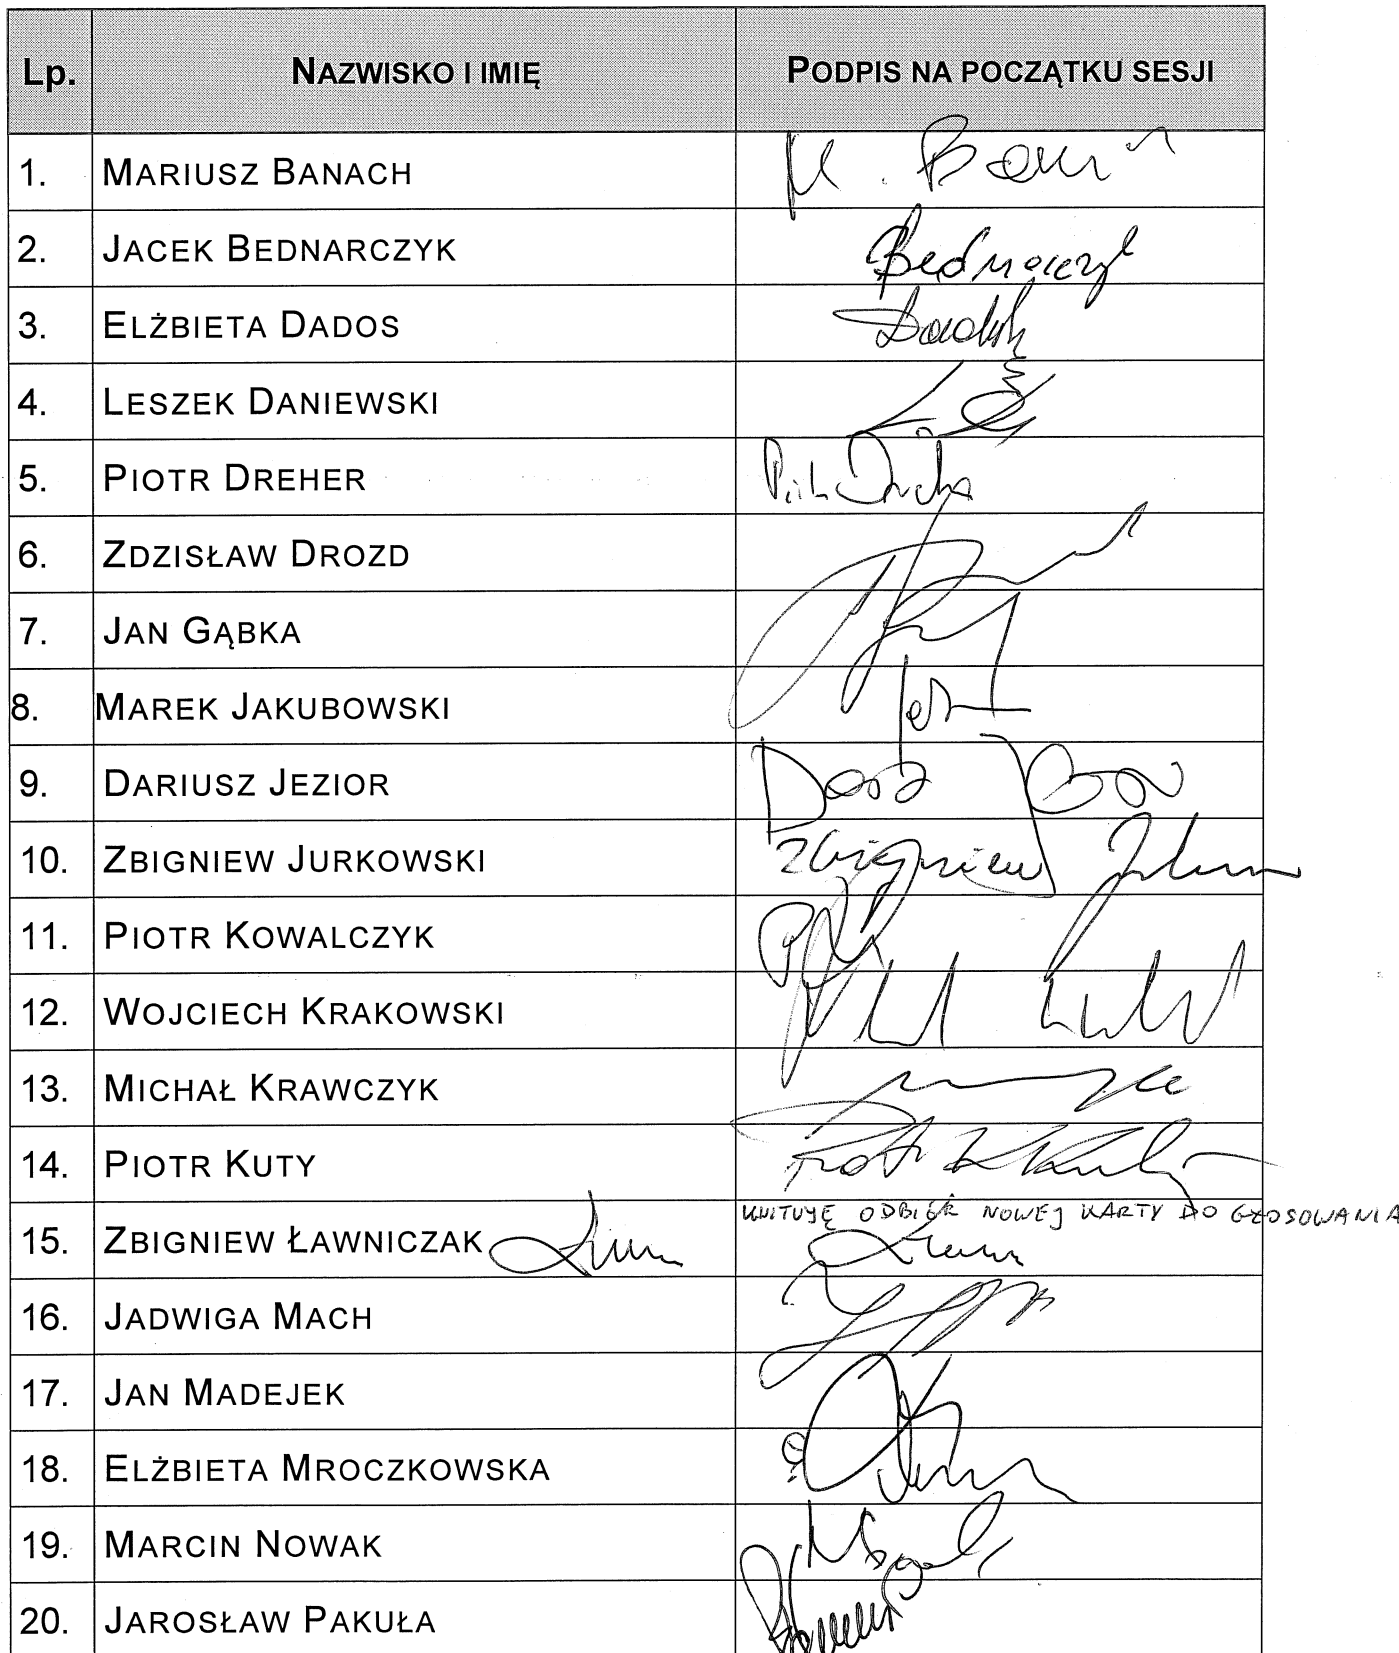 Lp. NAZWISKO I IMIĘ PODPIS NA POCZĄTKU SESJI
1. MARIUSZ BANACH M. Ban
2. JACEK BEDNARCZYK Bednarczyk
3. ELŻBIETA DADOS Dados
4. LESZEK DANIEWSKI
5. PIOTR DREHER Piotr Dreher
6. ZDZISŁAW DROZD
7. JAN GĄBKA
8. MAREK JAKUBOWSKI
9. DARIUSZ JEZIOR
10. ZBIGNIEW JURKOWSKI Zbigniew
11. PIOTR KOWALCZYK
12. WOJCIECH KRAKOWSKI
13. MICHAŁ KRAWCZYK
14. PIOTR KUTY Piotr
KWITUJĘ ODBIÓR NOWEJ KARTY DO GŁOSOWANIA
15. ZBIGNIEW ŁAWNICZAK
16. JADWIGA MACH
17. JAN MADEJEK
18. ELŻBIETA MROCZKOWSKA
19. MARCIN NOWAK
20. JAROSŁAW PAKUŁA